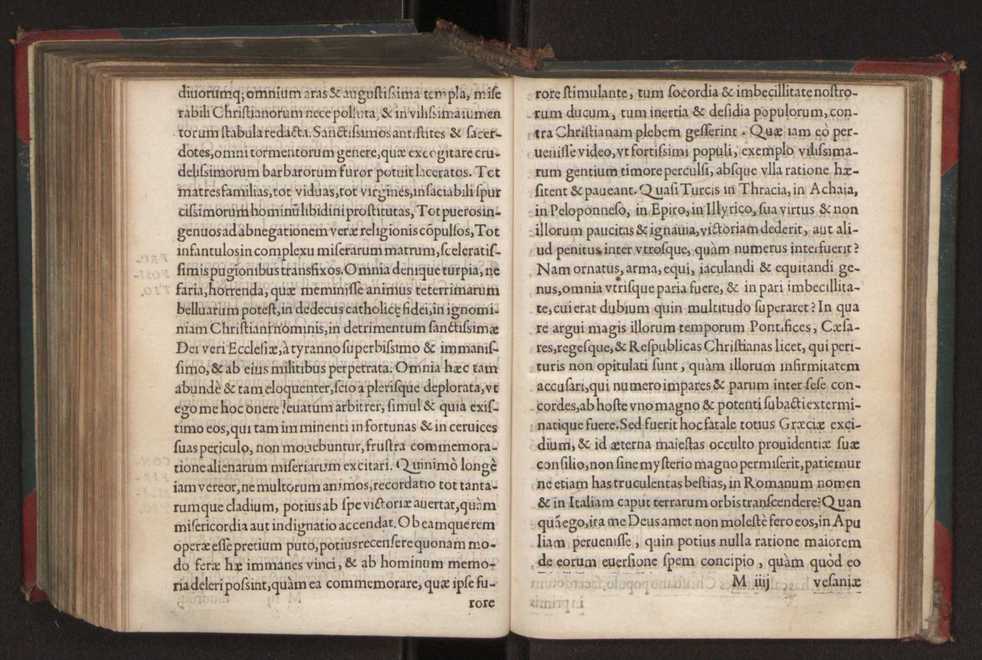 diuorumq; omnium aras & augustissima templa, mise
rabili Christianorum nece polluta, & in vilissima iumen
torum stabula redacta. Sanctissimos antistites & sacer-
dotes, omni tormentorum genere, quæ excogitare cru-
delissimorum barbarorum furor potuit laceratos. Tot
matresfamilias, tot viduas, tot virgines, insaciabili spur
cissimorum hominũ libidini prostitutas, Tot pueros in-
genuos ad abnegationem veræ religionis cõpulsos, Tot
infantulos in complexu miserarum matrum, sceleratis-
simis pugionibus transfixos. Omnia denique turpia, ne
faria, horrenda, quæ meminisse animus teterrimarum
belluarum potest, in dedecus catholicę fidei, in ignomi-
niam Christiani nominis, in detrimentum sanctissimæ
Dei veri Ecclesiæ, à tyranno superbissimo & immanis-
simo, & ab eius militibus perpetrata. Omnia hæc tam
abundè & tam eloquenter, scio a plerisque deplorata, vt
ego me hoc onere leuatum arbitrer, simul & quia exis-
timo eos, qui tam imminenti in fortunas & in ceruices
suas periculo, non mouebuntur, frustra commemora-
tione alienarum miseriarum excitari. Quinimò longè
iam vereor, ne multorum animos, recordatio tot tanta-
rumque cladium, potius ab spe victoriæ auertat, quàm
misericordia aut indignatio accendat. Ob eamque rem
operæ esse pretium puto, potius recensere quonam mo-
do feræ hæ immanes vinci, & ab hominum memo-
ria deleri possint, quàm ea commemorare, quæ ipse fu-
rore
rore stimulante, tum socordia & imbecillitate nostro-
rum ducum, tum inertia & desidia populorum, con-
tra Christianam plebem gesserint. Quæ iam eò per-
uenisse video, vt fortissimi populi, exemplo vilissima-
rum gentium timore perculsi, absque vlla ratione hæ-
sitent & paueant. Quasi Turcis in Thracia, in Achaia,
in Peloponneso, in Epiro, in Illyrico, sua virtus & non
illorum paucitas & ignauia, victoriam dederit, aut ali-
ud penitus inter vtrosque, quàm numerus interfuerit?
Nam ornatus, arma, equi, iaculandi & equitandi ge-
nus, omnia vtrisque paria fuere, & in pari imbecillita-
te, cui erat dubium quin multitudo superaret? In qua
re argui magis illorum temporum Pontifices, Cæsa-
res, regesque, & Respublicas Christianas licet, qui peri-
turis non opitulati sunt, quàm illorum infirmitatem
accusari, qui numero impares & parum inter sese con-
cordes, ab hoste vno magno & potenti subacti extermi-
natique fuere. Sed fuerit hoc fatale totius Græciæ exci-
dium, & id æterna maiestas occulto prouidentiæ suæ
consilio, non sine mysterio magno permiserit, patiemur
ne etiam has truculentas bestias, in Romanum nomen
& in Italiam caput terrarum orbis transcendere? Quan
quã ego, ita me Deus amet non molestè fero eos, in Apu
liam peruenisse, quin potius nulla ratione maiorem
de eorum euersione spem concipio, quàm quòd eo
M iiij vesaniæ